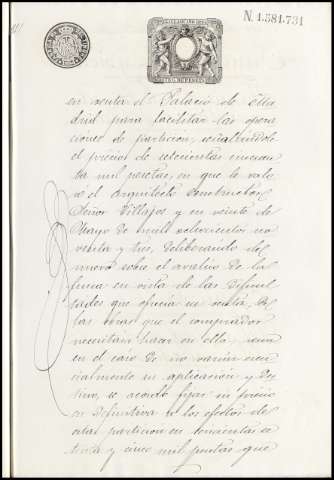 N. 1.581.731
en venta el Palacio de Ma
drid para facilitar las opera
ciones de particion, señalándole
el precio de setecientas cincuenta
mil pesetas, en que le valo
ró el arquitecto constructor
Señor Villajos y en veinte de
Mayo de mil ochocientos no
venta y tres, deliberando de
nuevo sobre el avalúo de la
finca en vista de las dificul
tades que ofrecia su venta, de
las obras que el comprador
necesitaría hacer en ella, aun
en el caso de no variar esen
cialmente su aplicacion y des
tino, se acordó fijar su precio
en definitiva a los efectos de
esta particion en trescientas se
tenta y cinco mil pesetas que